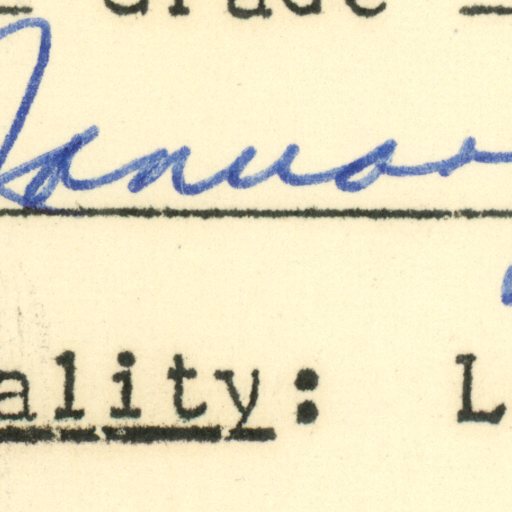 Grade
Januar
ality: L